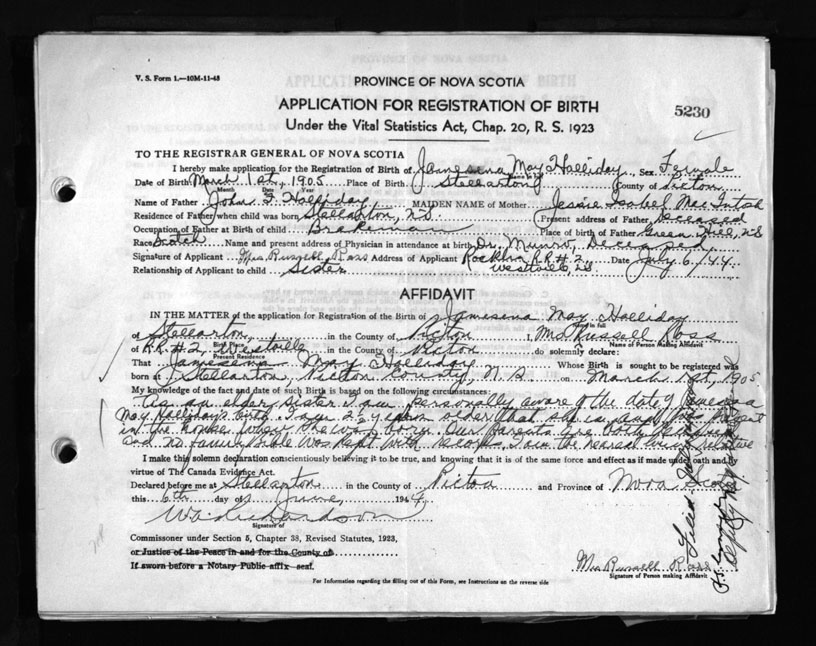 V. S. Form 1.—10M-11-43
PROVINCE OF NOVA SCOTIA
APPLICATION FOR REGISTRATION OF BIRTH
5230
Under the Vital Statistics Act, Chap. 20, R. S. 1923
TO THE REGISTRAR GENERAL OF NOVA SCOTIA
I hereby make application for the Registration of Birth of Jamesena May Halliday Sex Female
Date of Birth March 1st, 1905 Place of Birth Stellarton County of Pictou
Month Day Year
Name of Father John F. Halliday, MAIDEN NAME of Mother Jessie Isabel MacIntosh
Residence of Father when child was born Stellarton, N.S. Present address of Father Deceased
Occupation of Father at Birth of child Brakeman Place of birth of Father Green Hill, N.S
Race Scotch Name and present address of Physician in attendance at birth Dr. Munro, Deceased
Signature of Applicant Mrs Russell Ross Address of Applicant Rocklin R.R.#2, Westville, N.S Date July 6/44
Relationship of Applicant to child Sister
AFFIDAVIT
IN THE MATTER of the application for Registration of the Birth of Jamesena May Halliday
Name in full
of Stellarton, in the County of Pictou I, Mrs Russell Ross
Birth Place Name of Person Making Affidavit
of R.R.#2 Westville in the County of Pictou do solemnly declare:
Present Residence
That Jamesena May Halliday Whose Birth is sought to be registered was
born at Stellarton, Pictou County, N.S on March 1st, 1905
My knowledge of the fact and date of such Birth is based on the following circumstances:
As an elder sister I am personally aware of the date of Jamesena
May Halliday's birth. I am 2 years older than she is and was present
in the house when she was born. Our parents are both
and no family Bible was kept with records. I am the nearest living relative
I make this solemn declaration conscientiously believing it to be true, and knowing that it is of the same force and effect as if made under oath and by
virtue of The Canada Evidence Act.
Declared before me at Stellarton in the County of Pictou and Province of Nova Scotia
this 6th day of June, 1944.
W.A. Richardson
Signature of
Commissioner under Section 5, Chapter 38, Revised Statutes, 1923,
or Justice of the Peace in and for the County of
If sworn before a Notary Public affix seal.
Mrs Russell Ross
Signature of Person making Affidavit
For Information regarding the filling out of this Form, see Instructions on the reverse side
Filed